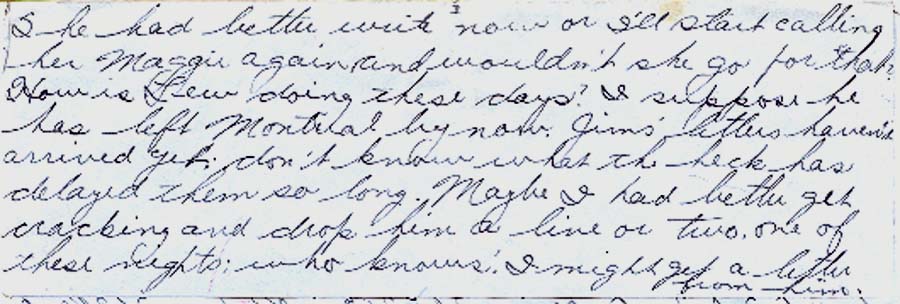 She had better write now or I'll start calling
her Maggie again, and wouldn't she go for that.
How is Lew doing these days? I suppose he
has left Montreal by now. Jims' letters haven't
arrived yet; don't know what the heck has
delayed them so long. Maybe I had better get
cracking and drop him a line or two, one of
these nights; who knows! I might get a letter
from him.